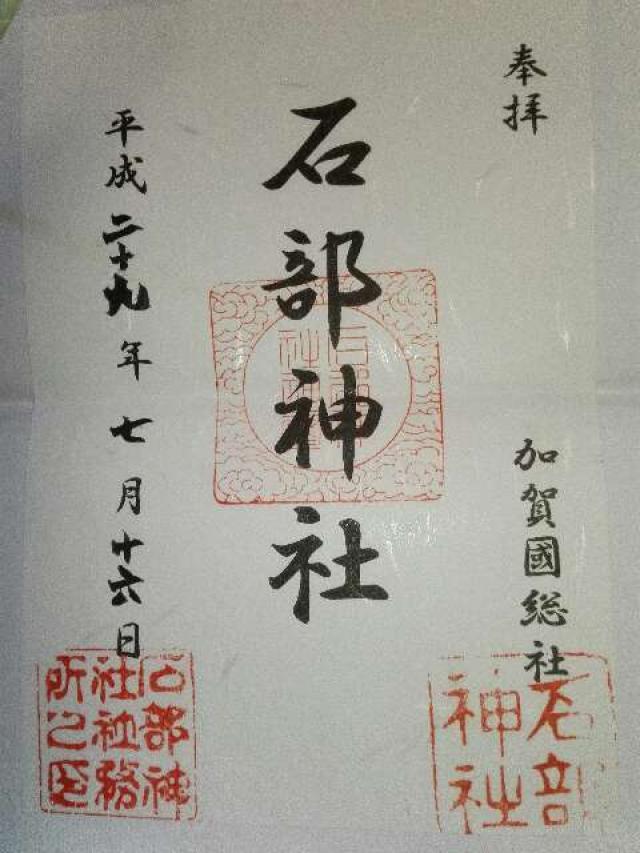 奉拝
加賀國総社
石部神社
平成二十九年七月十六日
石部神社
石部神社社務所之印